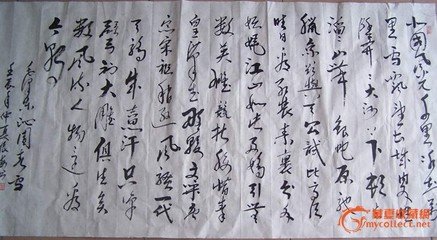 北国风光千里冰封万
里雪飘望长城内外
莽莽大河上下顿
滔滔山舞银蛇原驰
腊象欲与天公试比高须
晴日看红装素裹分外
妖娆江山如此多娇引无
数英雄竞折腰惜秦
皇汉武略输文采唐
宗宋祖稍逊风骚一代
天骄成吉思汗只识
弯弓射大雕俱往矣
数风流人物还看
今朝
毛泽东沁园春雪
仲夏
华夏收藏网
mycollect.net